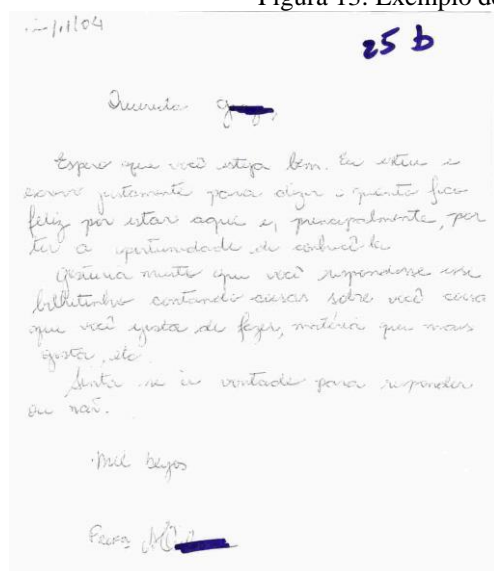 Figura 13: Exemplo de
/11/04
25 b
Querida
Espero que você esteja bem. Eu estou e
escrevo justamente para dizer o quanto fico
feliz por estar aqui e, principalmente, por
ter a oportunidade de conhecê-la
Gostaria muito que você respondesse esse
bilhetinho contando coisas sobre você coisa
que você gosta de fazer, matéria que mais
gosta, etc.
Sinta se à vontade para responder
ou não.
Mil beijos